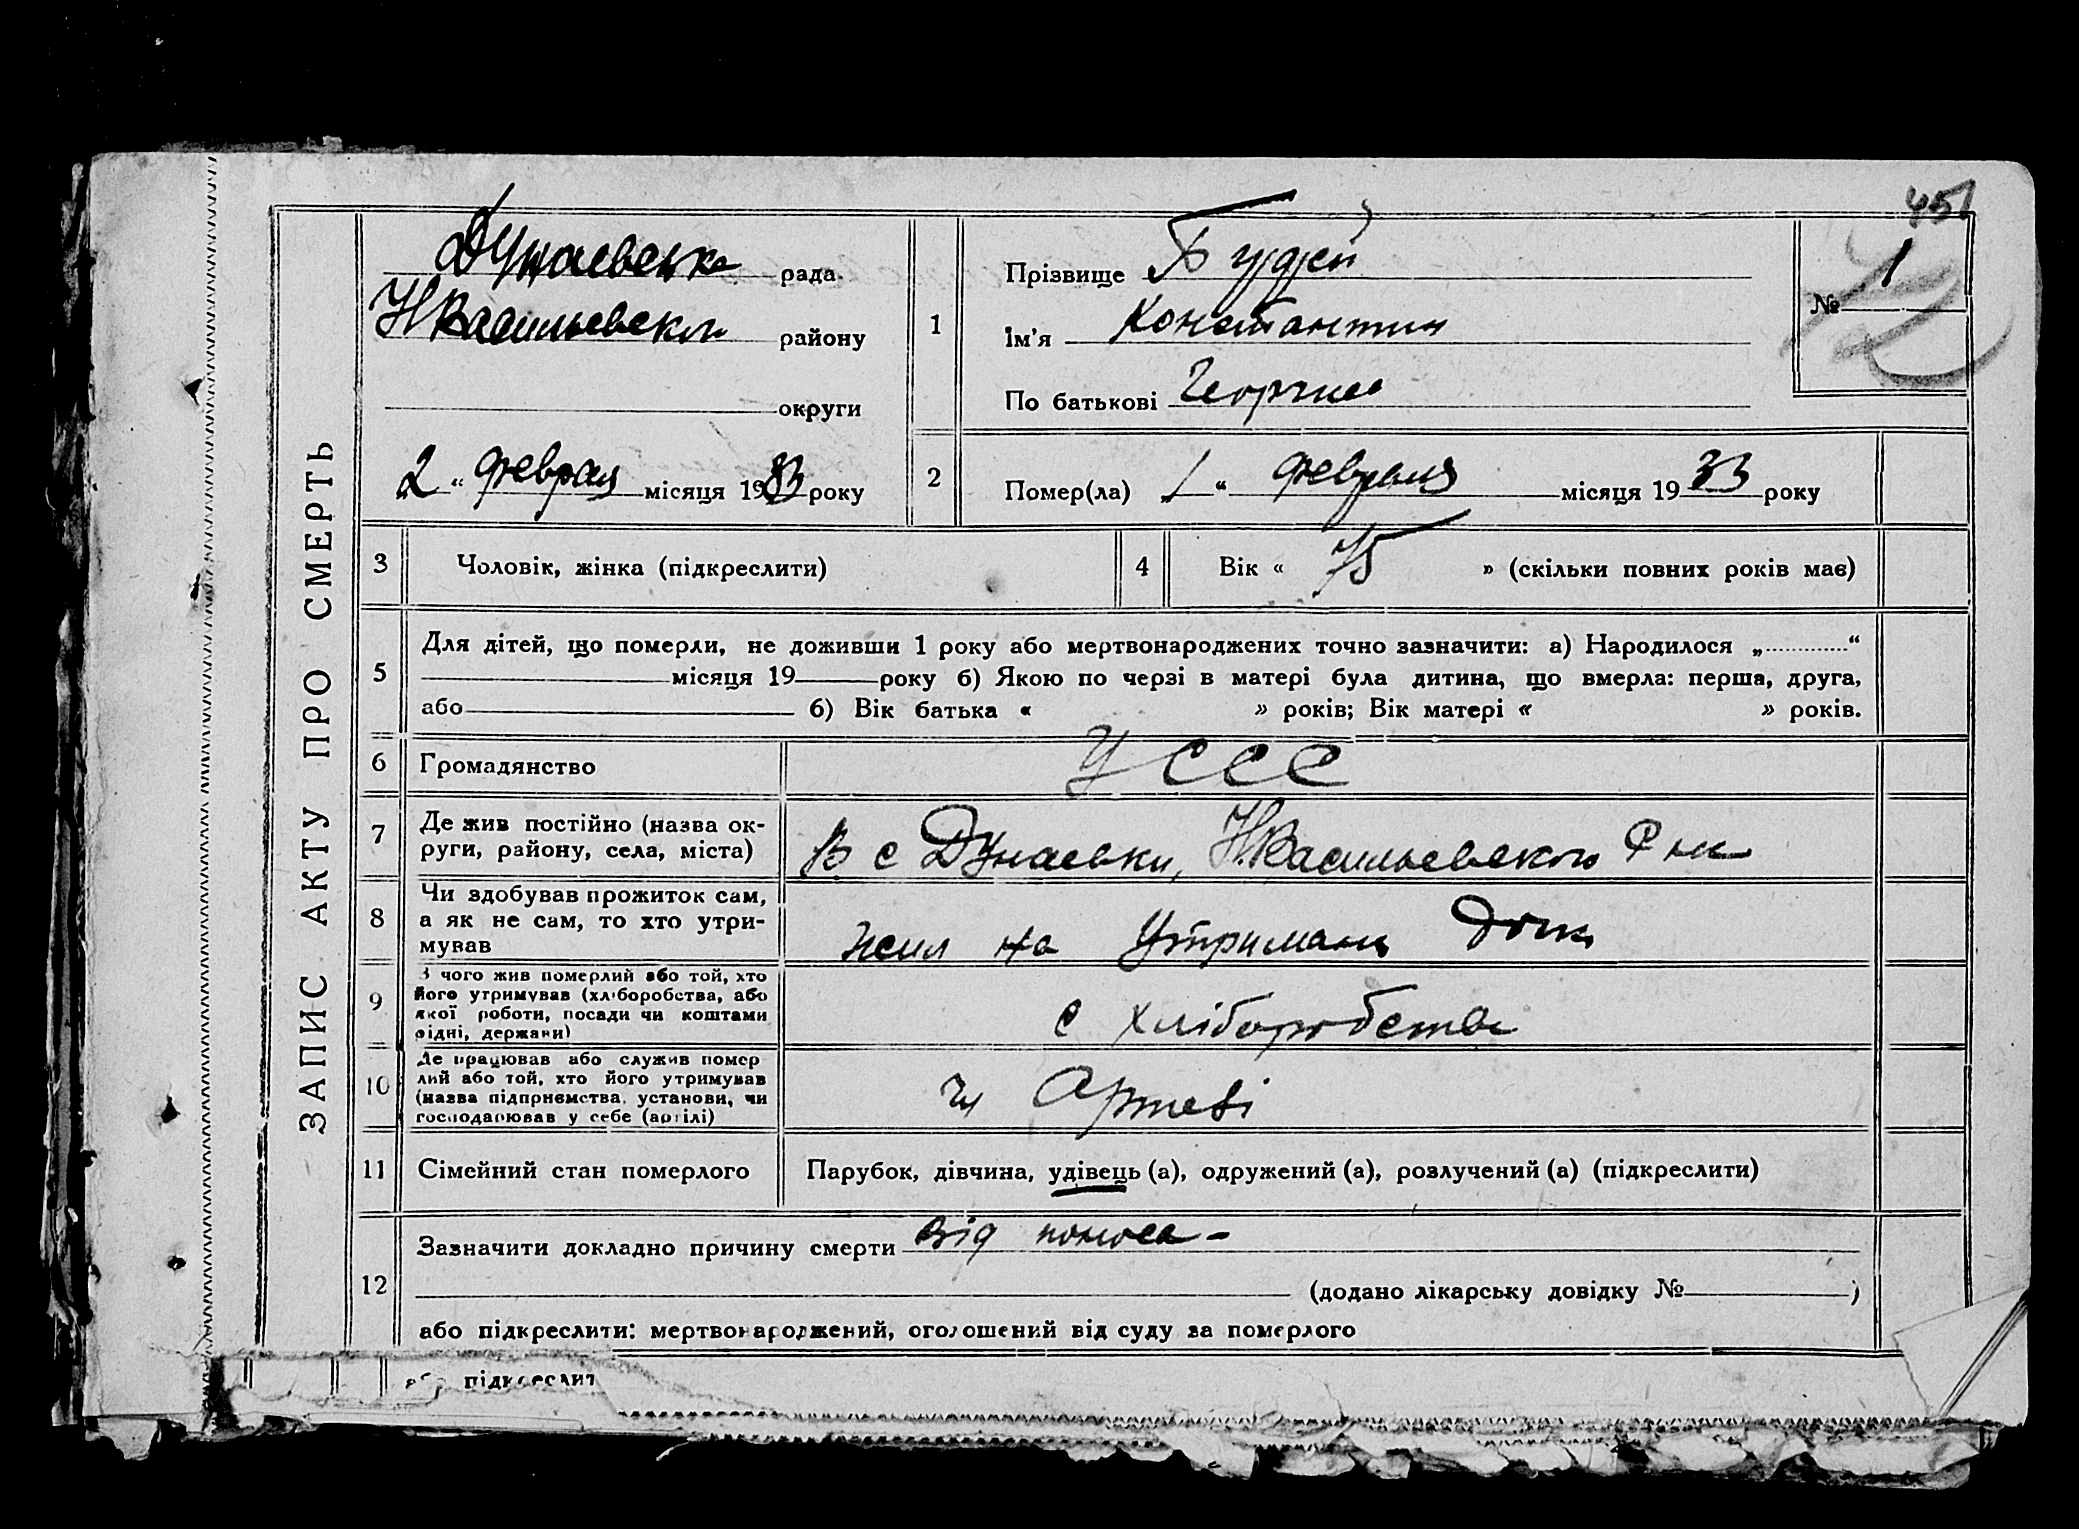 451
ЗАПИС АКТУ ПРО СМЕРТЬ
Дунаевська рада
Н Васильевского району
округи
2 " февраля місяця 1933 року
1
Прізвище Будей
Ім'я Константин
По батькові Георгиев
№ 1
2
Помер(ла) 1 " февраля місяця 1933 року
3 Чоловік, жінка (підкреслити)
4 Вік « 75 » (скільки повних років має)
5
Для дітей, що померли, не доживши 1 року або мертвонароджених точно зазначити: а) Народилося „ “
місяця 19 року б) Якою по черзі в матері була дитина, що вмерла: перша, друга,
або б) Вік батька « » років; Вік матері « » років.
6 Громадянство УССС
7
Де жив постійно (назва ок-
руги, району, села, міста)
В с Дунаевки, Н.Васильевского Р на
8
Чи здобував прожиток сам,
а як не сам, то хто утри-
мував
жил на утримани
9
З чого жив померлий або той, хто
його утримував (хліборобства, або
якої роботи, посади чи коштами
рідні, держави)
с хліборобства
10
Де працював або служив помер
лий або той, хто його утримував
(назва підприємства, установи, чи
господарював у себе (артілі)
Артеві
11 Сімейний стан померлого Парубок, дівчина, удівець (а), одружений (а), розлучений (а) (підкреслити)
12
Зазначити докладно причину смерти від поноса -
(додано лікарську довідку № )
або підкреслити: мертвонароджений, оголошений від суду за померлого
або підкреслит